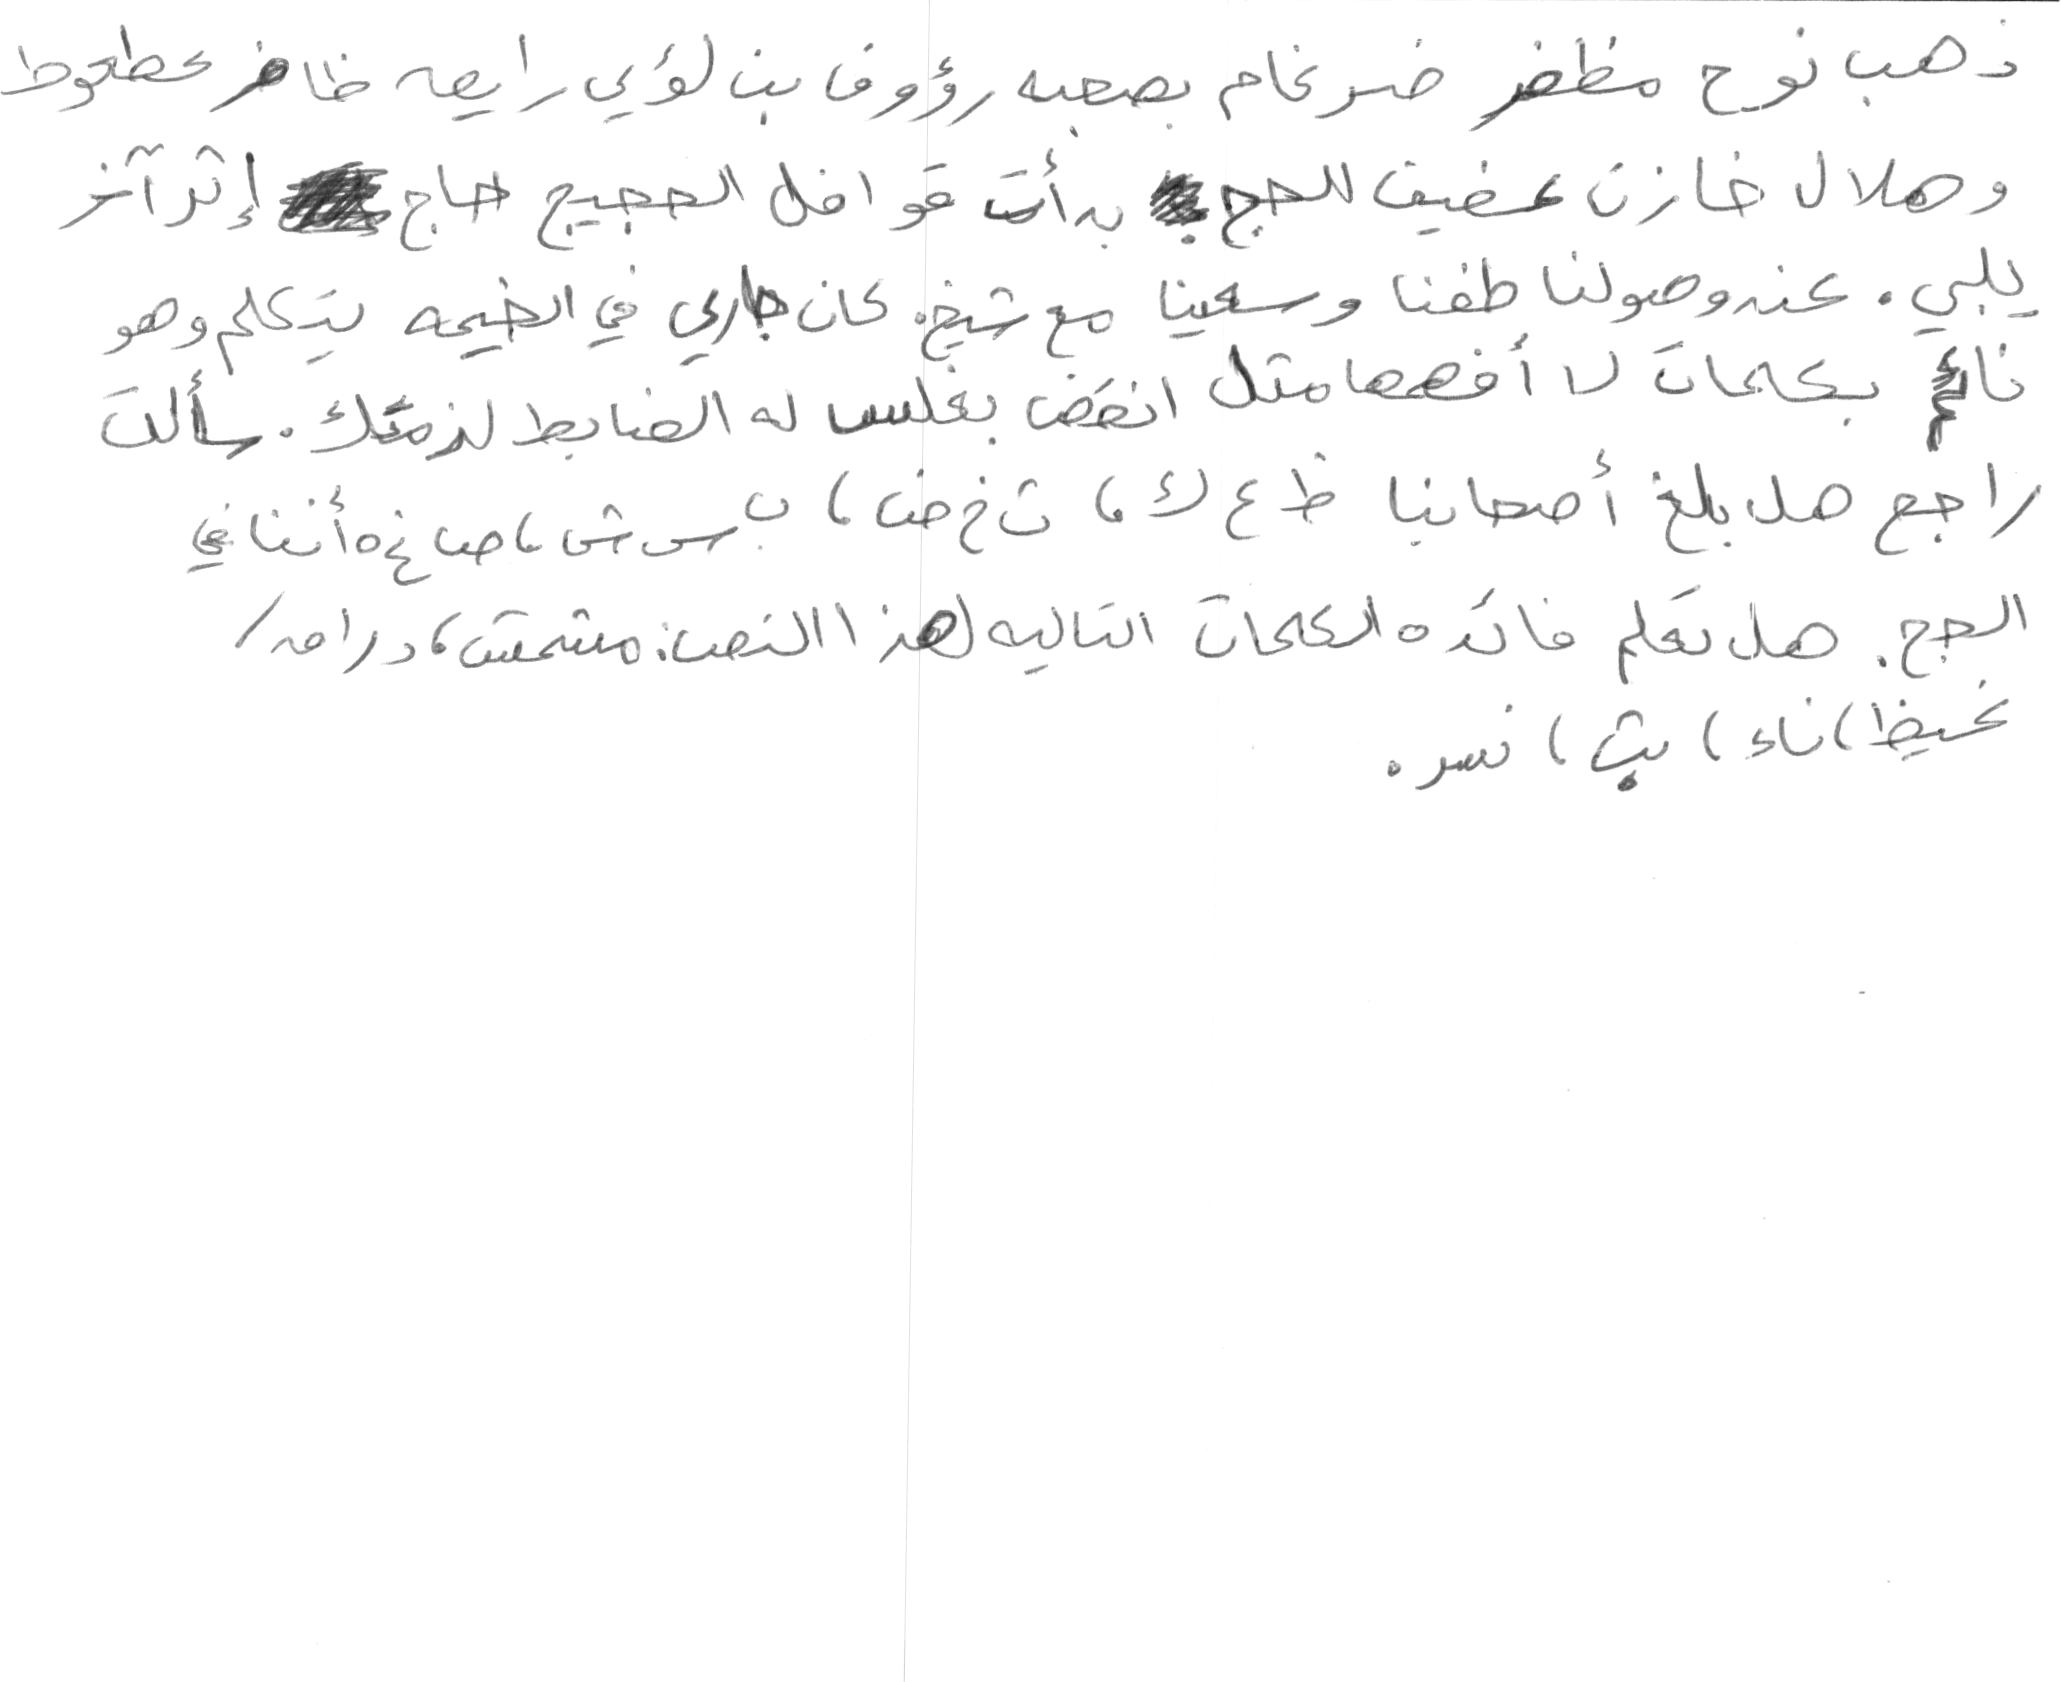 ذهب نوح مظفر ضرغام بصحبه رؤوف بن لؤي رايعه ظافر عطعوط
وهلال خازن عضيف للحج بدأت قوافل الحجيج حاج إثر آخر
يلبي. عند وصولنا طفنا وسعينا مع شيخ. كان جاري في الخيمه يتكلم وهو
نائم بكلمات لا أفهمها مثل انغض بغلس له الضابط لذمتك. سألت
راجع هل بلغ أصحابنا ظ ع ك، ث خ ض، ب س ش، ص غ ه أننا في
الحج. هل تعلم فائده الكلمات التاليه لهذا النص: مشمش، دراهه/
غيظ، ناء، بث، نسر.